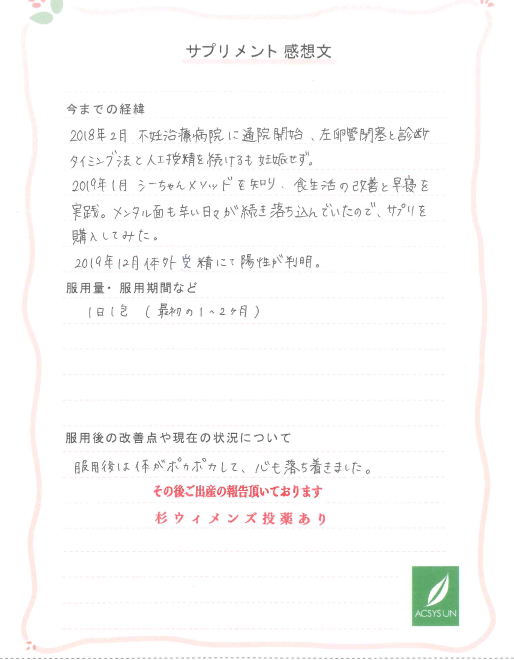 サプリメント 感想文
今までの経緯
2018年2月 不妊治療病院に通院開始、左卵管閉塞と診断
タイミング法と人工授精を続けるも妊娠せず。
2019年1月 シーちゃんメソッドを知り、食生活の改善と早寝を
実践。メンタル面も辛い日々が続き落ち込んでいたので、サプリを
購入してみた。
2019年12月体外受精にて陽性が判明。
服用量・服用期間など
1日1包 (最初の1~2ヶ月)
服用後の改善点や現在の状況について
服用後は体がポカポカして、心も落ち着きました。
その後ご出産の報告頂いております
杉ウィメンズ投薬あり
ACSYSUN